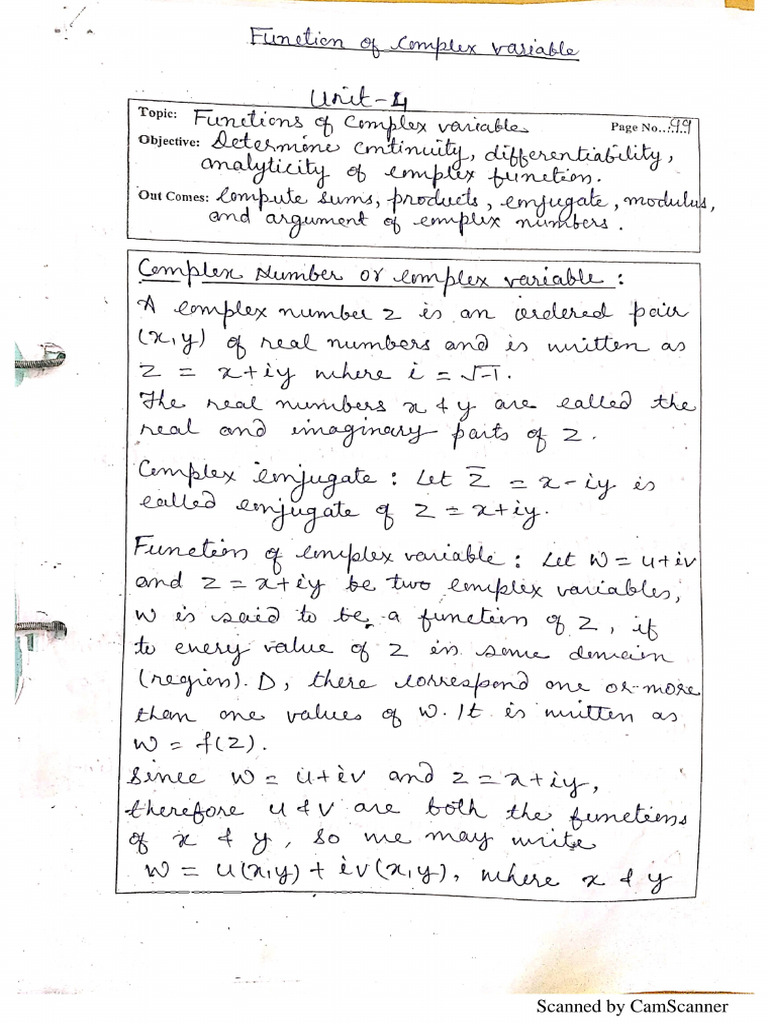 Function of complex variable
Unit-4
Topic: Functions of complex variable Page No...99
Objective: Determine continuity, differentiability,
analyticity of complex function.
Out Comes: Compute sums, products, conjugate, modulus,
and argument of complex numbers.
Complex Number or complex variable :
A complex number z is an ordered pair
(x,y) of real numbers and is written as
z = x+iy where i = √-1.
The real numbers x & y are called the
real and imaginary parts of z.
Complex conjugate : Let z̅ = x-iy is
called conjugate of z = x+iy.
Function of complex variable : Let w = u+iv
and z = x+iy be two complex variables,
w is said to be a function of z, if
to every value of z in some domain
(region). D, there correspond one or more
than one values of w. It is written as
w = f(z).
Since w = u+iv and z = x+iy,
therefore u & v are both the functions
of x & y, so we may write
w = u(x,y) + iv(x,y), where x & y
Scanned by CamScanner